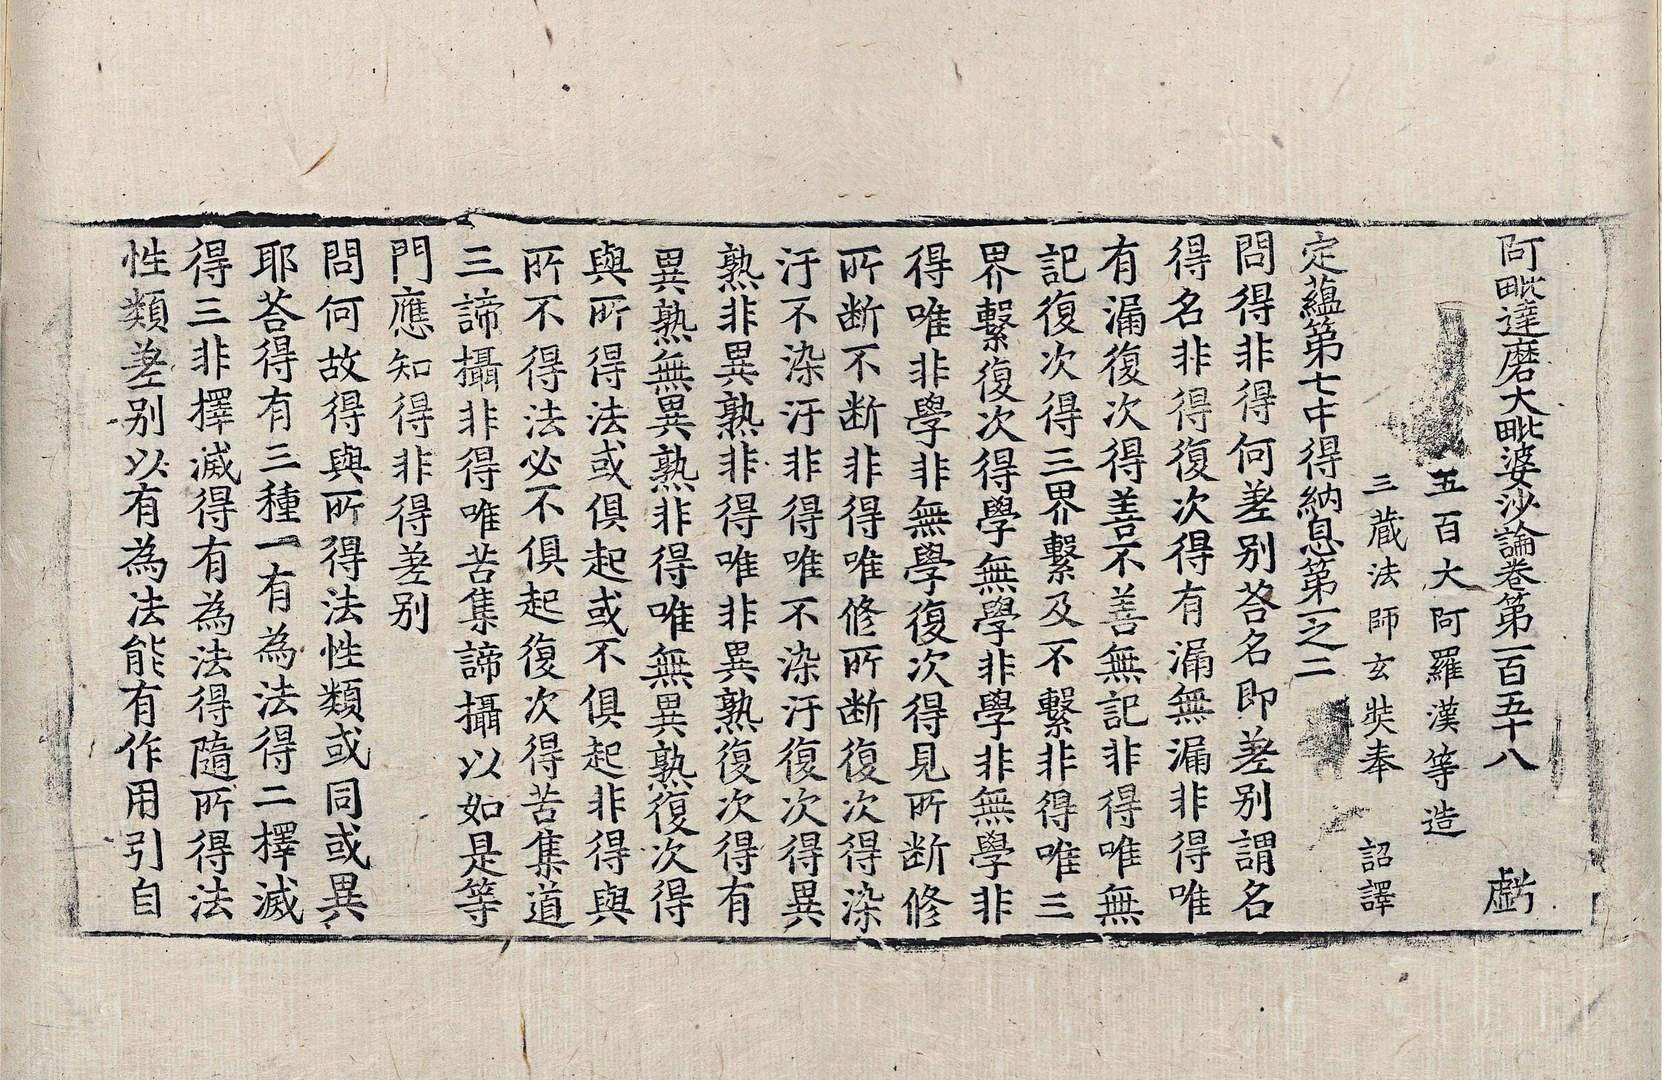 阿毗達磨大毗婆沙論卷第一百五十八　虧
五百大阿羅漢等造
三藏法師玄奘奉　詔譯
定蘊第七中得納息第一之二
問得非得何差別荅名即差別謂名
得名非得復次得有漏無漏非得唯
有漏復次得善不善無記非得唯無
記復次得三界繫及不繫非得唯三
界繫復次得學無學非學非無學非
得唯非學非無學復次得見所斷修
所斷不斷非得唯修所斷復次得染
汙不染汙非得唯不染汙復次得異
熟非異熟非得唯非異熟復次得有
異熟無異熟非得唯無異熟復次得
與所得法或俱起或不俱起非得與
所不得法必不俱起復次得苦集道
三諦攝非得唯苦集諦攝以如是等
門應知得非得差别
問何故得與所得法性類或同或異
耶荅得有三種一有為法得二擇滅
得三非擇滅得有為法得隨所得法
性類差别以有為法能有作用引自